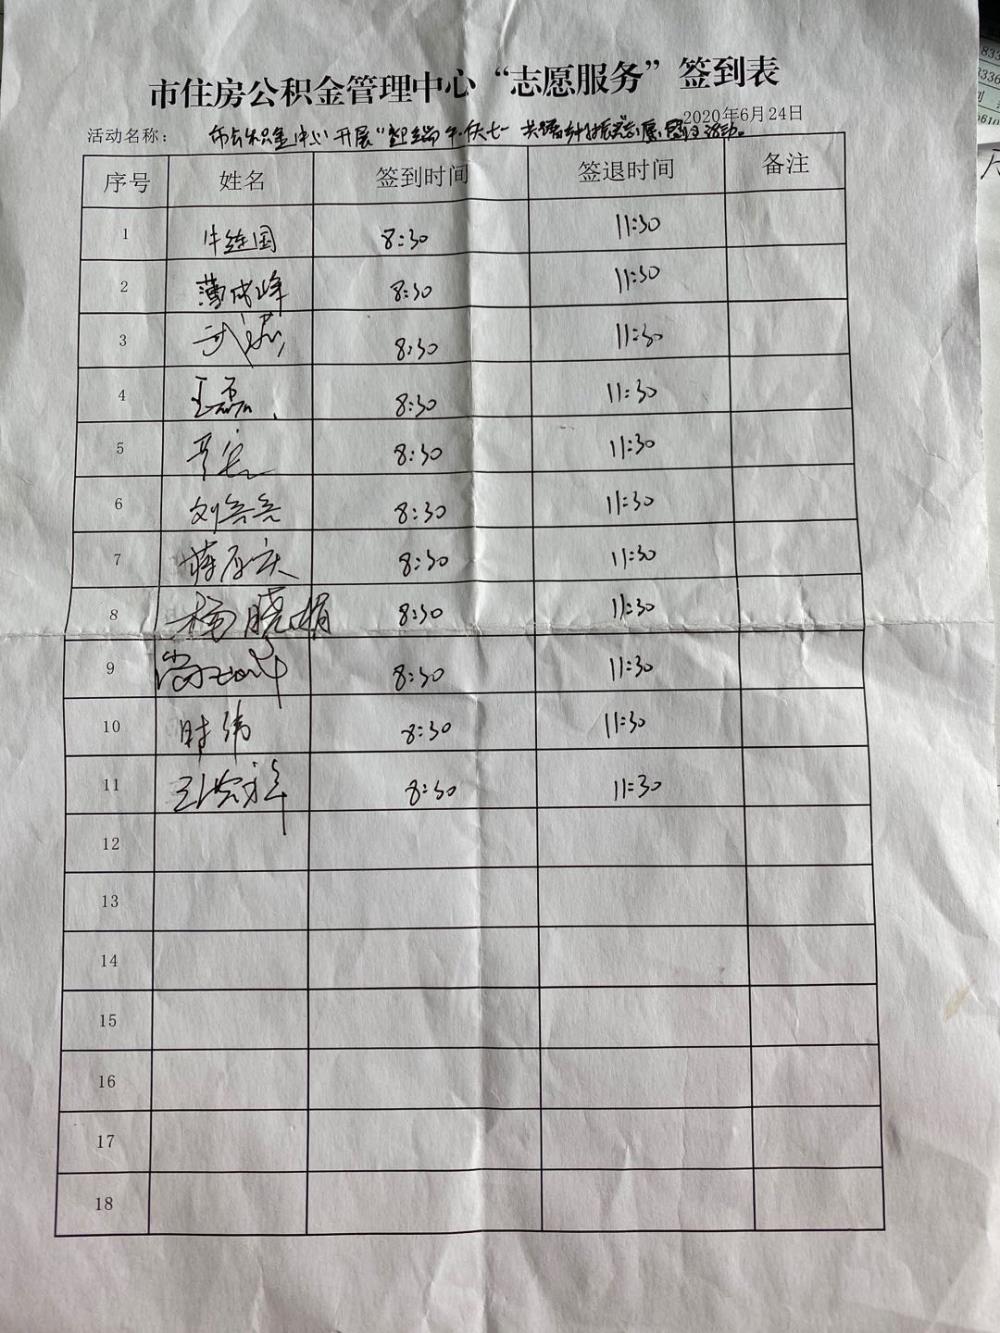 市住房公积金管理中心“志愿服务”签到表
2020年6月24日
活动名称： 市公积金中心开展“迎端午 庆七一
序号 姓名 签到时间 签退时间 备注
1 牛连国 8:30 11:30
2 薄成峰 8:30 11:30
3 8:30 11:30
4 王磊 8:30 11:30
5 8:30 11:30
6 刘亮亮 8:30 11:30
7 8:30 11:30
8 杨晓娟 8:30 11:30
9 8:30 11:30
10 时伟 8:30 11:30
11 8:30 11:30
12
13
14
15
16
17
18